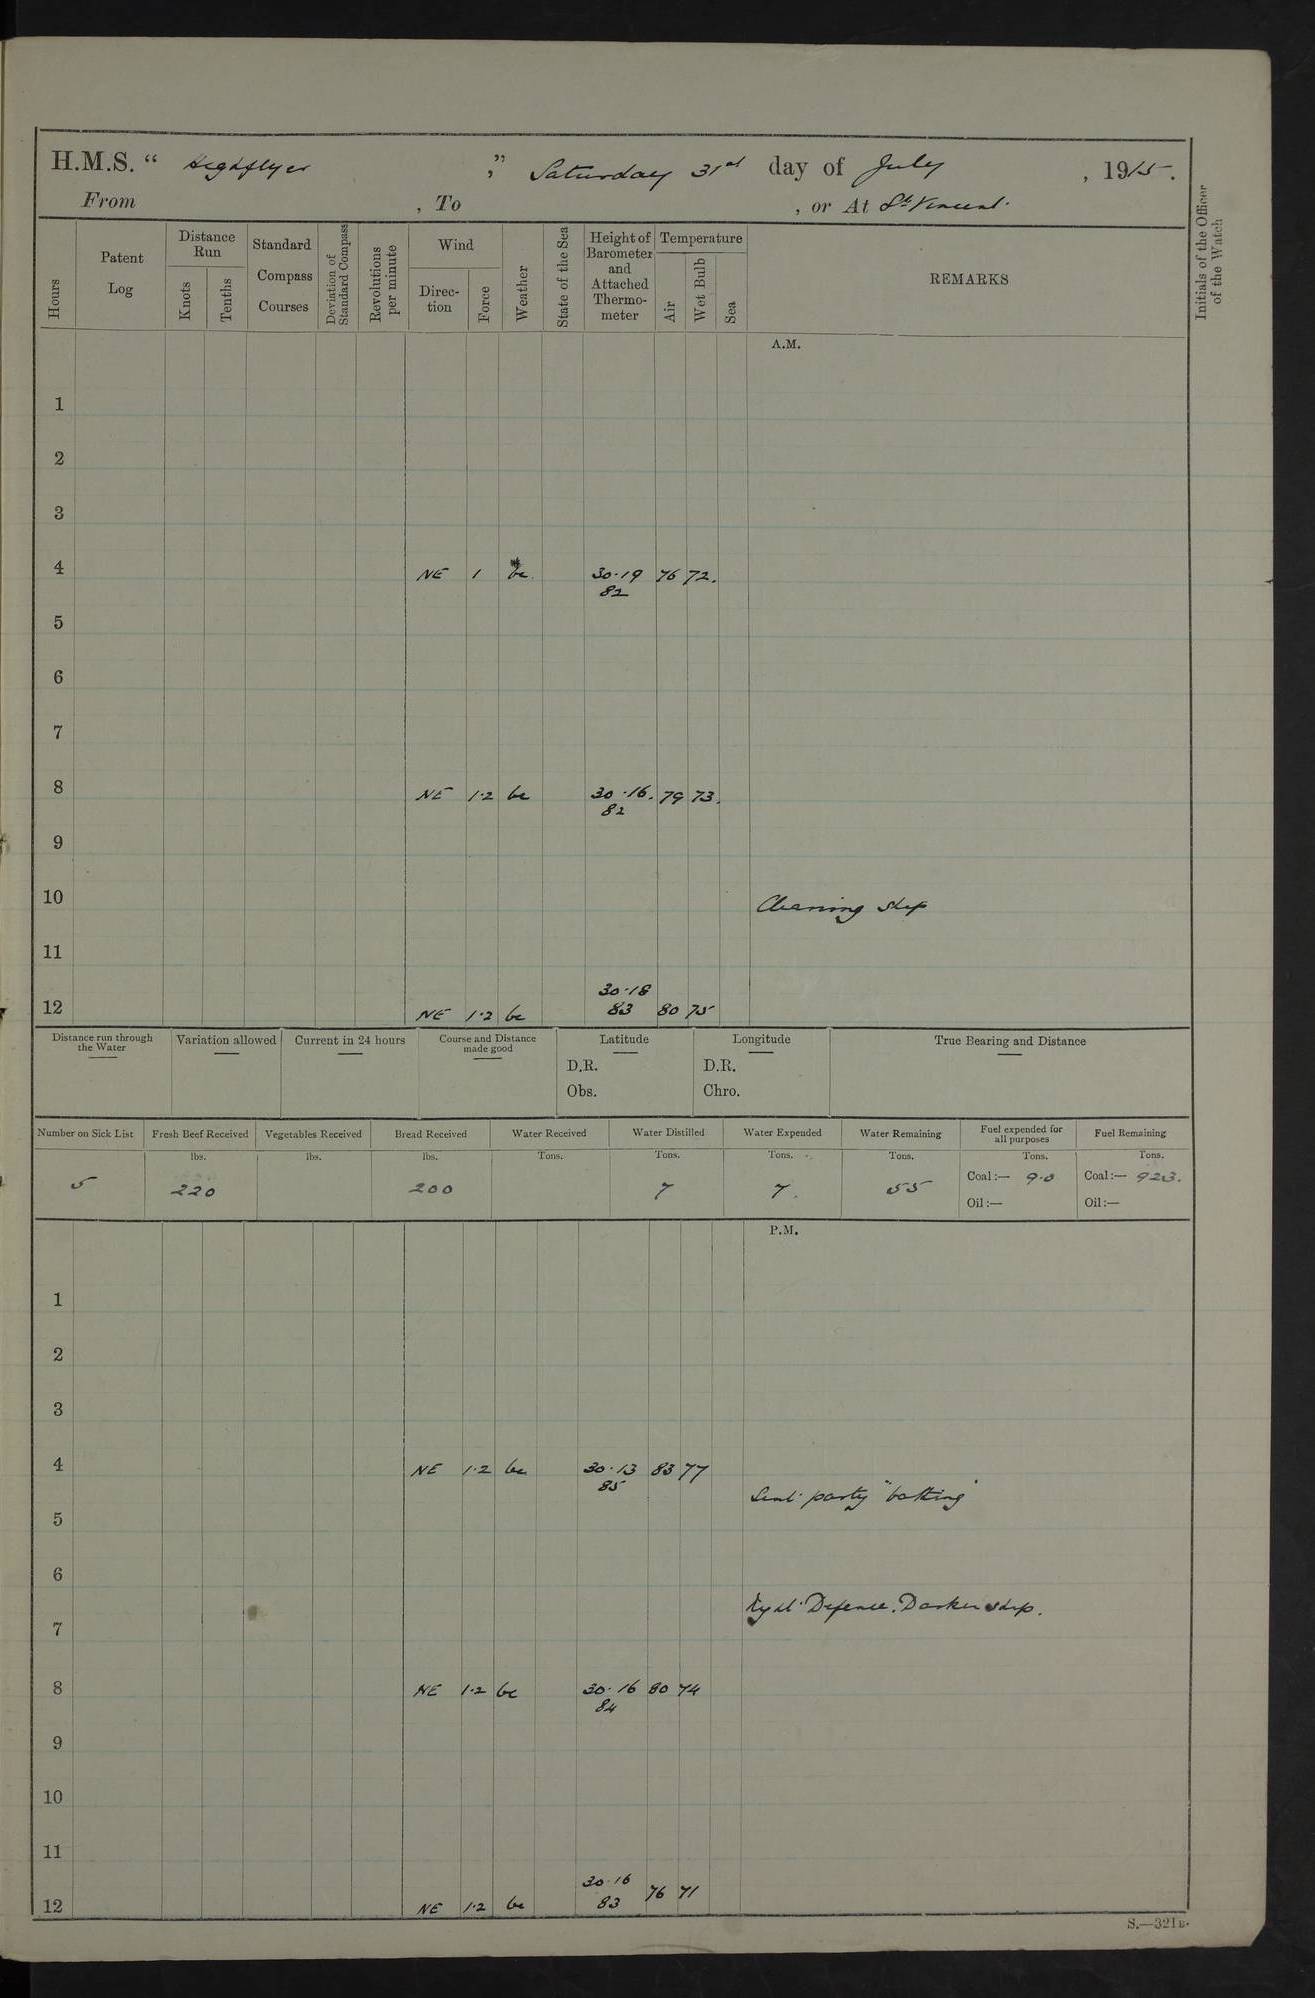 H.M.S. " Highflyer ", Saturday 31st day of July, 1915.
From , To , or At St Vincent.
Hours
Patent Log
Distance Run
Knots
Tenths
Standard Compass Courses
Deviation of Standard Compass
Revolutions per minute
Wind
Direction
Force
Weather
State of the Sea
Height of Barometer and Attached Thermometer
Temperature
Air
Wet Bulb
Sea
REMARKS
Initials of the Officer of the Watch
A.M.
1
2
3
4 NE 1 bc 30.19 76 72.
82
5
6
7
8 NE 1.2 bc 30.16. 79 73.
82
9
10 Cleaning ship
11
30.18
12 NE 1.2 bc 83 80 75
Distance run through the Water
Variation allowed
Current in 24 hours
Course and Distance made good
Latitude
D.R.
Obs.
Longitude
D.R.
Chro.
True Bearing and Distance
Number on Sick List Fresh Beef Received Vegetables Received Bread Received Water Received Water Distilled Water Expended Water Remaining Fuel expended for all purposes Fuel Remaining
lbs. lbs. lbs. Tons. Tons. Tons. Tons. Tons. Tons.
5 220 200 7 7. 55 Coal:— 9.0 Coal:— 923.
Oil:— Oil:—
P.M.
1
2
3
4 NE 1.2 bc 30.13 83 77
85
Sent party "bathing"
5
6
Defence. Darken ship.
7
8 NE 1.2 bc 30.16 80 74
84
9
10
11
30.16
12 NE 1.2 bc 83 76 71
S.—321B.